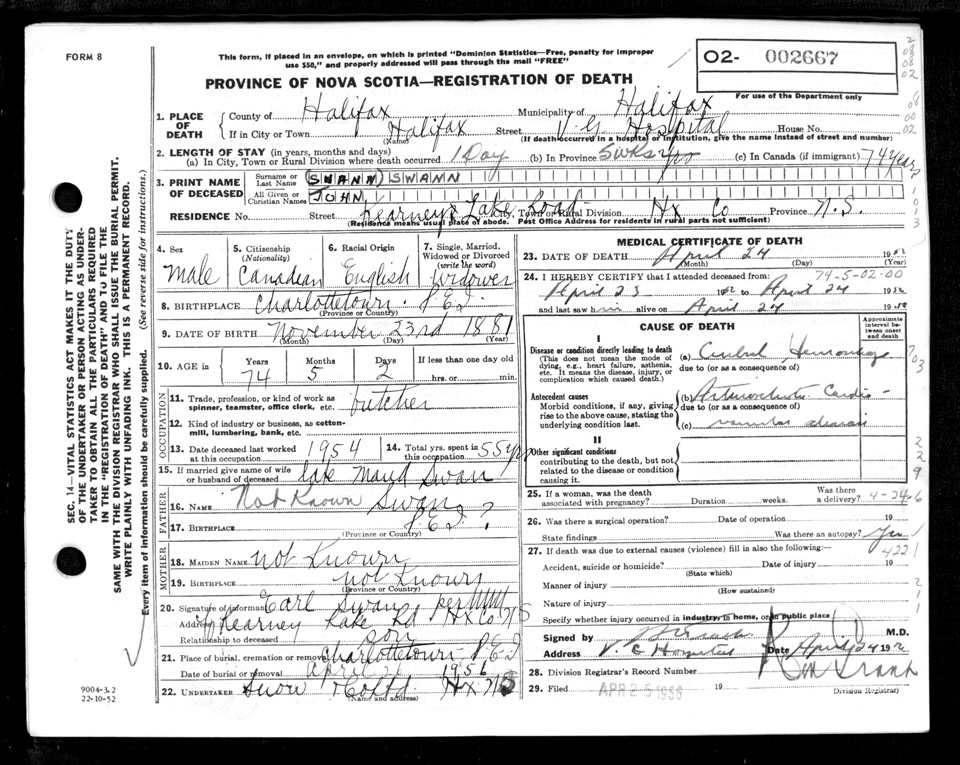 FORM 8
This form, if placed in an envelope, on which is printed "Dominion Statistics—Free, penalty for improper
use $50," and properly addressed will pass through the mail "FREE"
O2- 002667
For use of the Department only
PROVINCE OF NOVA SCOTIA—REGISTRATION OF DEATH
1. PLACE OF DEATH
County of Halifax Municipality of Halifax
If in City or Town Halifax Street V G Hospital House No.
(Name) (If death occurred in a hospital or institution, give the name instead of street and number)
2. LENGTH OF STAY (in years, months and days)
(a) In City, Town or Rural Division where death occurred 1 Day (b) In Province (c) In Canada (if immigrant) 74 Years
3. PRINT NAME OF DECEASED
Surname or Last Name SWANN SWAMN
All Given or Christian Names JOHN
RESIDENCE No. Street Kearneys Lake Road City, Town or Rural Division Hx Co Province N.S.
(Residence means usual place of abode. Post Office Address for residents in rural parts not sufficient)
4. Sex Male
5. Citizenship (Nationality) Canadian
6. Racial Origin English
7. Single, Married, Widowed or Divorced (write the word) Widower
8. BIRTHPLACE Charlottetown P.E.I.
(Province or Country)
9. DATE OF BIRTH November 23rd 1881
(Month) (Day) (Year)
10. AGE in Years 74 Months 5 Days 2 If less than one day old hrs. or min.
OCCUPATION
11. Trade, profession, or kind of work as spinner, teamster, office clerk, etc. butcher
12. Kind of industry or business, as cotton-mill, lumbering, bank, etc.
13. Date deceased last worked at this occupation 1954
14. Total yrs. spent in this occupation 55 yrs
15. If married give name of wife or husband of deceased late Maud Swan
FATHER
16. NAME Not Known Swan
17. BIRTHPLACE P.E.I. ?
(Province or Country)
MOTHER
18. MAIDEN NAME not Known
19. BIRTHPLACE not Known
(Province or Country)
20. Signature of informant Earl Swan per
Address Kearney Lake Rd Hx Co NS
Relationship to deceased son
21. Place of burial, cremation or removal Charlottetown P.E.I
Date of burial or removal April 1956
22. UNDERTAKER Snow & Co Ltd Hx NS
(Name and address)
MEDICAL CERTIFICATE OF DEATH
23. DATE OF DEATH April 24 19
(Month) (Day) (Year)
24. I HEREBY CERTIFY that I attended deceased from: 74-5-02-00
April 23 19 to April 24 19
and last saw him alive on April 24 19
CAUSE OF DEATH
Approximate interval between onset and death
I
Disease or condition directly leading to death
(This does not mean the mode of dying, e.g., heart failure, asthenia, etc. It means the disease, injury, or complication which caused death.)
(a) Cerebral Hemorrhage
due to (or as a consequence of)
Antecedent causes
Morbid conditions, if any, giving rise to the above cause, stating the underlying condition last.
(b) Cardio-
due to (or as a consequence of)
(c) vascular disease
II
Other significant conditions
contributing to the death, but not related to the disease or condition causing it.
25. If a woman, was the death associated with pregnancy? Duration weeks. Was there a delivery? 4-24-6
26. Was there a surgical operation? Date of operation 19
State findings Was there an autopsy? Yes
27. If death was due to external causes (violence) fill in also the following:- 4221
Accident, suicide or homicide? Date of injury 19
(State which)
Manner of injury
(How sustained)
Nature of injury
Specify whether injury occurred in industry, in home, or in public place
Signed by M.D.
Address V G Hospital Date April 24 19
28. Division Registrar's Record Number
29. Filed APR 25 1956 19
Division Registrar)
SEC. 14—VITAL STATISTICS ACT MAKES IT THE DUTY
OF THE UNDERTAKER OR PERSON ACTING AS UNDER-
TAKER TO OBTAIN ALL THE PARTICULARS REQUIRED
IN THE "REGISTRATION OF DEATH" AND TO FILE THE
SAME WITH THE DIVISION REGISTRAR WHO SHALL ISSUE THE BURIAL PERMIT.
WRITE PLAINLY WITH UNFADING INK. THIS IS A PERMANENT RECORD.
Every item of information should be carefully supplied. (See reverse side for instructions.)
9004-3.2
22-10-52